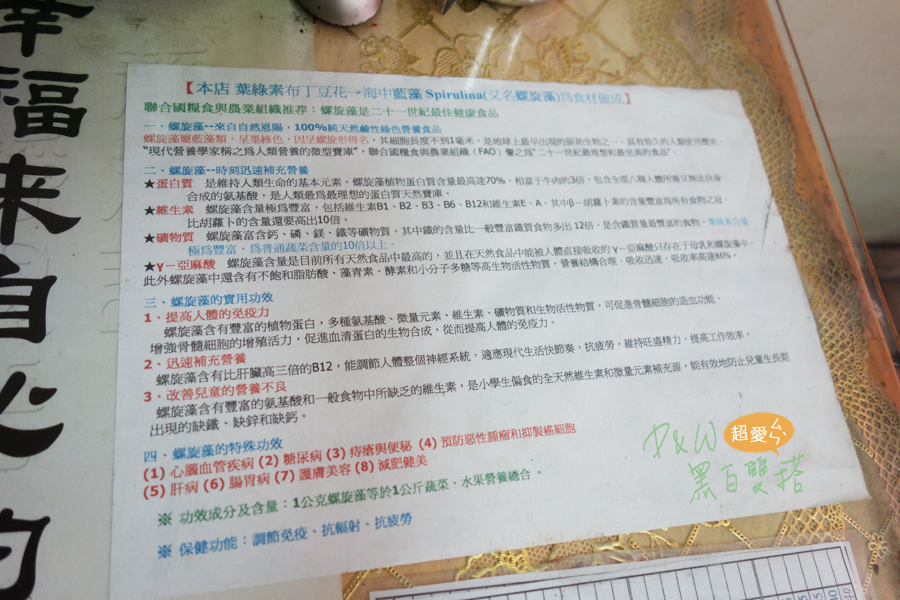 幸福來自心的
【本店 葉綠素布丁豆花→海中藍藻 Spirulina(又名螺旋藻)為食材做成】
聯合國糧食與農業組織推荐：螺旋藻是二十一世紀最佳健康食品
一、螺旋藻--來自自然恩賜，100%純天然鹼性綠色營養食品
螺旋藻屬藍藻類，呈墨綠色，因呈螺旋形得名，其細胞長度不到1毫米，是地球上最早出現的原始生物之一，具有悠久的人類食用歷史，
"現代營養學家稱之為人類營養的微型寶庫"，聯合國糧食與農業組織（FAO）譽之為"二十一世紀最理想和最完美的食品"。
二、螺旋藻--時刻迅速補充營養
★蛋白質 是維持人類生命的基本元素，螺旋藻植物蛋白質含量最高達70%，相當于牛肉的3倍，包含全部八種人體所需又無法自身
合成的氨基酸，是人類最為最理想的蛋白質天然寶庫。
★維生素 螺旋藻含量極為豐富，包括維生素B1、B2、B3、B6、B12和維生素E、A，其中β－胡蘿卜素的含量豐富為所有食物之冠，
比胡蘿卜的含量還要高出10倍。
★礦物質 螺旋藻富含鈣、磷、鎂、鐵等礦物質，其中鐵的含量比一般豐富鐵質食物多出 12倍，是含鐵質量最豐富的食物。葉綠素含量
極為豐富，為普通蔬菜含量的10倍以上。
★γ－亞麻酸 螺旋藻含量是目前所有天然食品中最高的，並且在天然食品中能被人體直接吸收的 γ－亞麻酸只存在于母乳和螺旋藻中。
此外螺旋藻中還含有不飽和脂肪酸、藻青素、酵素和小分子多糖等高生物活性物質，營養結構合理、吸收迅速，吸收率高達86%。
三、螺旋藻的實用功效
1、提高人體的免疫力
螺旋藻含有豐富的植物蛋白，多種氨基酸、微量元素、維生素、礦物質和生物活性物質，可促進骨髓細胞的造血功能，
增強骨髓細胞的增殖活力，促進血清蛋白的生物合成，從而提高人體的免疫力。
2、迅速補充營養
螺旋藻含有比肝臟高三倍的B12，能調節人體整個神經系統，適應現代生活快節奏，抗疲勞，維持旺盛精力，提高工作效率。
3、改善兒童的營養不良
螺旋藻含有豐富的氨基酸和一般食物中所缺乏的維生素，是小學生偏食的全天然維生素和微量元素補充源，能有效地防止兒童生長期
出現的缺鐵、缺鋅和缺鈣。
四、螺旋藻的特殊功效
(1) 心腦血管疾病 (2) 糖尿病 (3) 痔瘡與便秘 (4) 預防惡性腫瘤和抑製癌細胞
(5) 肝病 (6) 腸胃病 (7) 護膚美容 (8) 減肥健美
※ 功效成分及含量：1公克螺旋藻等於1公斤蔬菜、水果營養總合 。
※ 保健功能：調節免疫、抗輻射、抗疲勞
P&W 超愛ㄣㄣ
黑白雙搭